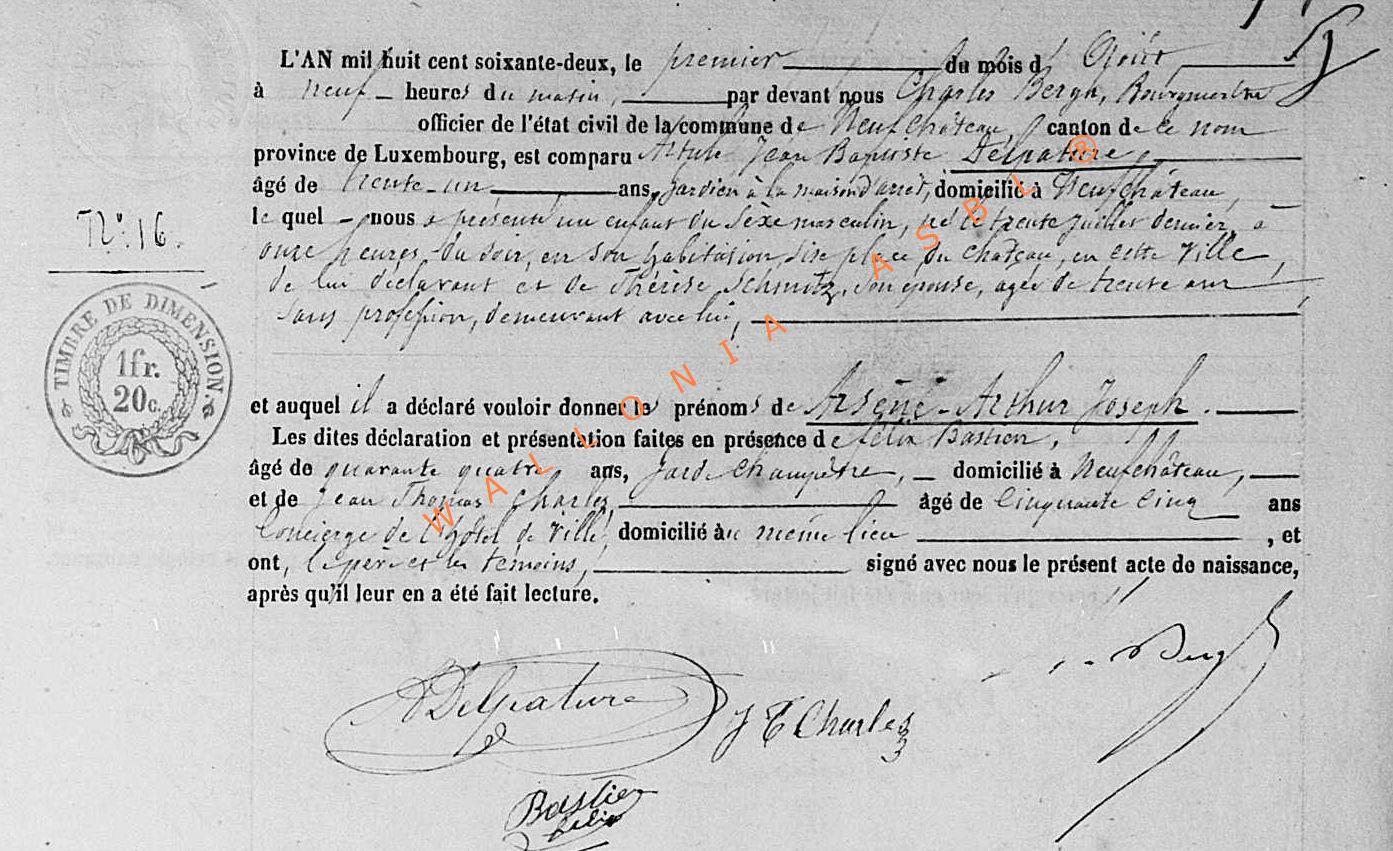 L'AN mil huit cent soixante-deux, le premier du mois d' Août,
à neuf heures du matin, par devant nous Charles Bergh, Bourgmestre
officier de l'état civil de la commune de Neufchâteau, canton de ce nom
province de Luxembourg, est comparu Jean Baptiste Delpature,
âgé de trente-un ans, gardien à la maison d'arrêt, domicilié à Neufchâteau,
le quel nous a présenté un enfant du sexe masculin, né le trente juillet dernier, à
N° 16.
onze heures du soir, en son habitation, sise place du château, en cette ville,
de lui déclarant et de Thérèse Schmitz, son épouse, agée de trente ans
sans profession, demeurant avec lui,
TIMBRE DE DIMENSION.
1fr.
20c.
et auquel il a déclaré vouloir donner les prénoms de Arsène-Arthur Joseph.
Les dites déclaration et présentation faites en présence de félix Bastien,
âgé de quarante quatre ans, garde champêtre, domicilié à Neufchâteau,
et de Jean Thomas Charles, âgé de Cinquante Cinq ans
Concierge de l'hôtel de Ville, domicilié au même lieu, et
ont, le père et les témoins, signé avec nous le présent acte de naissance,
après qu'il leur en a été fait lecture.
WALLONIA ASBL ®
Delpature
J T Charles
Bastien
felix